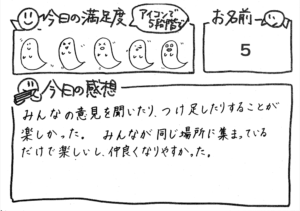 今日の満足度
アイコンで
5段階
お名前
5
今日の感想
みんなの意見を聞いたり、つけ足したりすることが
楽しかった。 みんなが同じ場所に集まっている
だけで楽しいし、仲良くなりやすかった。